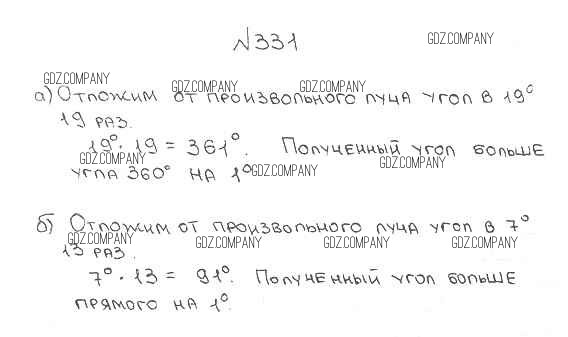 №331
GDZ.COMPANY
GDZ.COMPANY
GDZ.COMPANY
GDZ.COMPANY
а) Отложим от произвольного луча угол в 19°
19 раз.
19° · 19 = 361°. Полученный угол больше
GDZ.COMPANY
GDZ.COMPANY
угла 360° на 1°
GDZ.COMPANY
б) Отложим от произвольного луча угол в 7°
GDZ.COMPANY
GDZ.COMPANY
GDZ.COMPANY
GDZ.COMPANY
13 раз.
7° · 13 = 91°. Полученный угол больше
прямого на 1°.